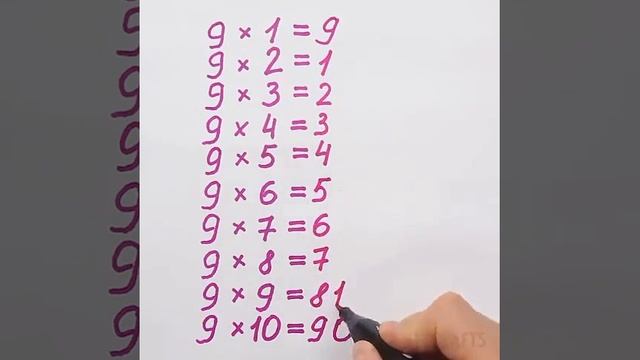 9 × 1 = 9
9 × 2 = 1
9 × 3 = 2
9 × 4 = 3
9 × 5 = 4
9 × 6 = 5
9 × 7 = 6
9 × 8 = 7
9 × 9 = 81
9 × 10 = 90